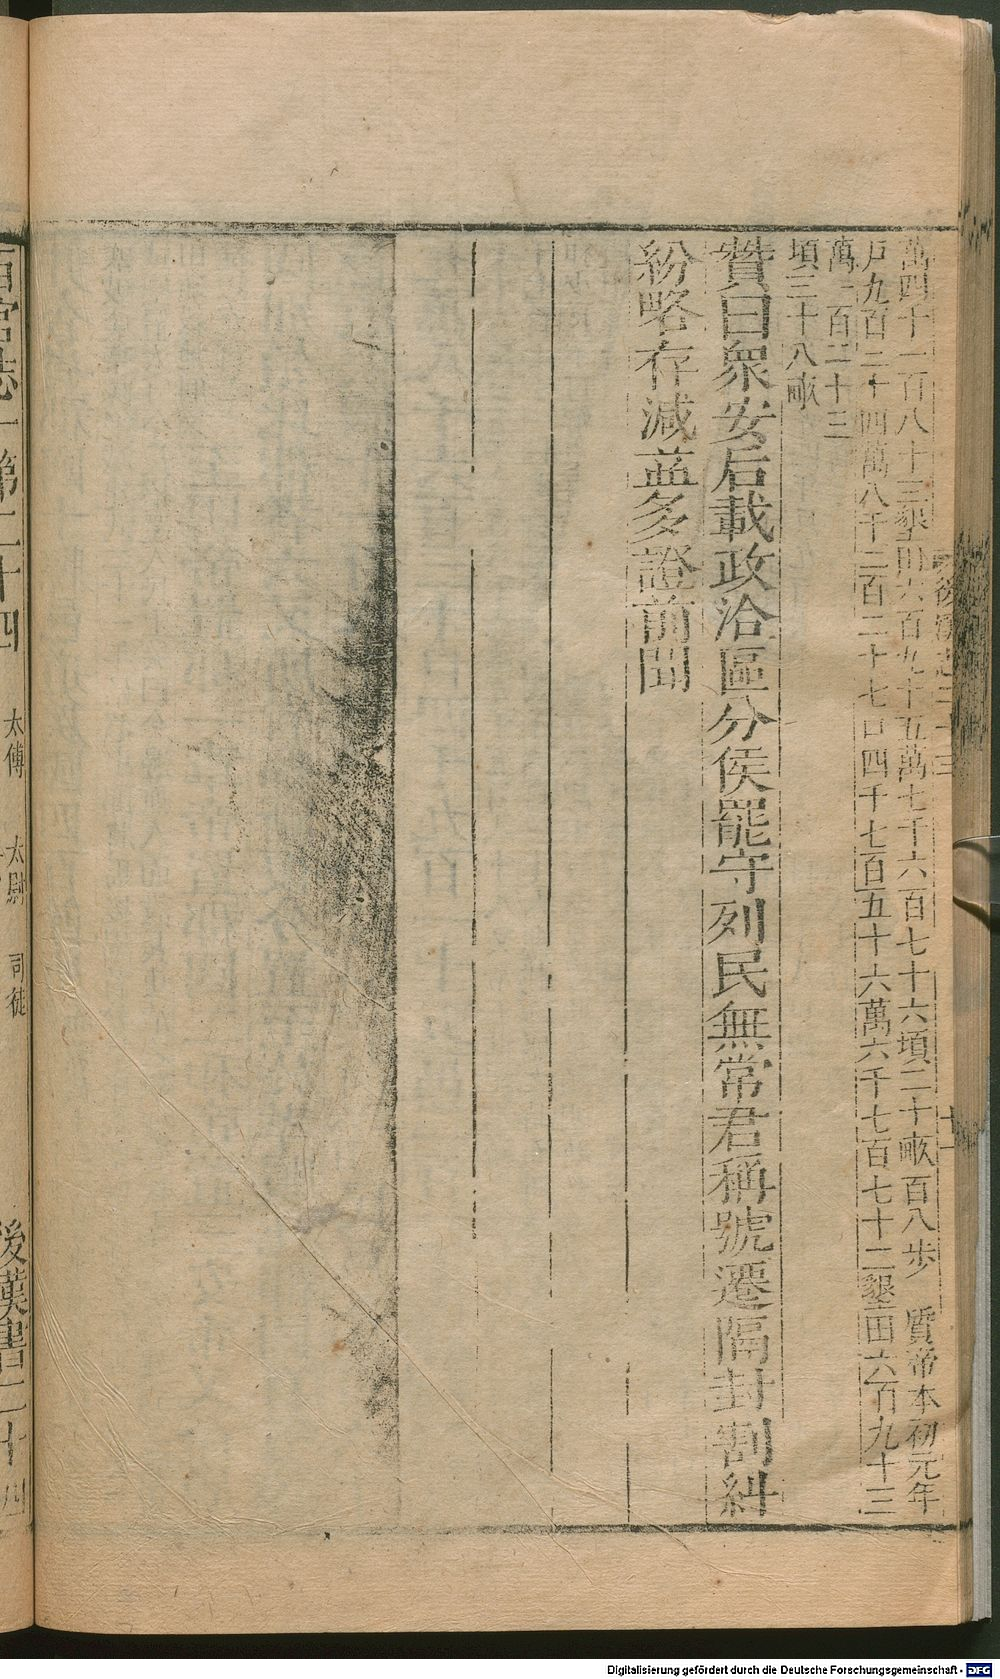 萬四十一百八十三墾田六百九十五萬七千六百七十六頃二十畝百八步　質帝本初元年
戶九百三十四萬八千二百二十七口四千七百五十六萬六千七百七十二墾田六百九十三
萬一百二十三
頃三十八畝
贊曰衆安后載政洽區分侯罷守列民無常君稱號遷隔封割糾
紛略存減益多證前聞
百官志一第二十四　太傅　太尉　司徒　後漢書二十四
Digitalisierung gefördert durch die Deutsche Forschungsgemeinschaft - DFG